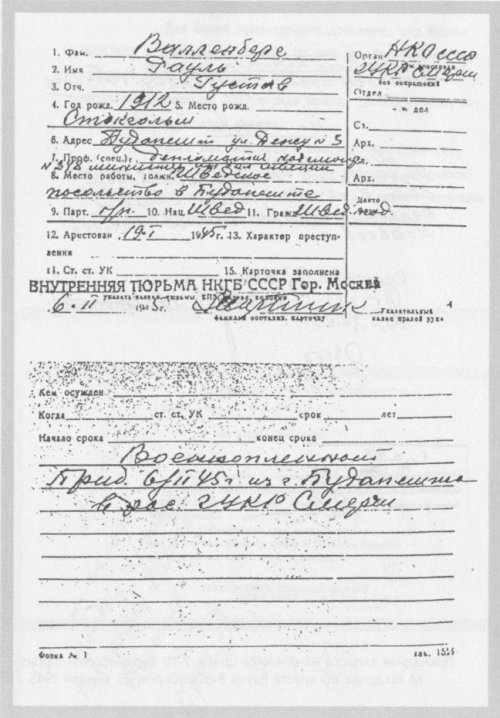 1. Фам. Валленберг
2. Имя Рауль
3. Отч. Густав
4. Год рожд. 1912 5. Место рожд.
Стокгольм
6. Адрес Будапешт ул. №3
7. Проф. (спец.) дипломатия
8. Место работы, должн. Шведское
посольство в Будапеште
9. Парт. б/п. 10. Нац. Швед 11. Гражд. Швед. под.
12. Арестован 19-I 1945 г. 13. Характер преступ-
ления
14. Ст. ст. УК 15. Карточка заполнена
ВНУТРЕННЯЯ ТЮРЬМА НКГБ СССР Гор. Москва
указать назван. тюрьмы, КПЗ, колонии
6.II 1945 г.
фамилия составив. карточку
Указательный
палец правой руки
Орган НКО СССР
ГУКР Смерш
без сокращений
Отдел
дел
Ст.
Арх.
Арх.
Дакто
Кем осужден
Когда ст. ст. УК срок лет
Начало срока конец срока
Военнопленный
Приб. 6/II 45 г из г. Будапешта
в рас. ГУКР Смерш
Форма № 1
зак.